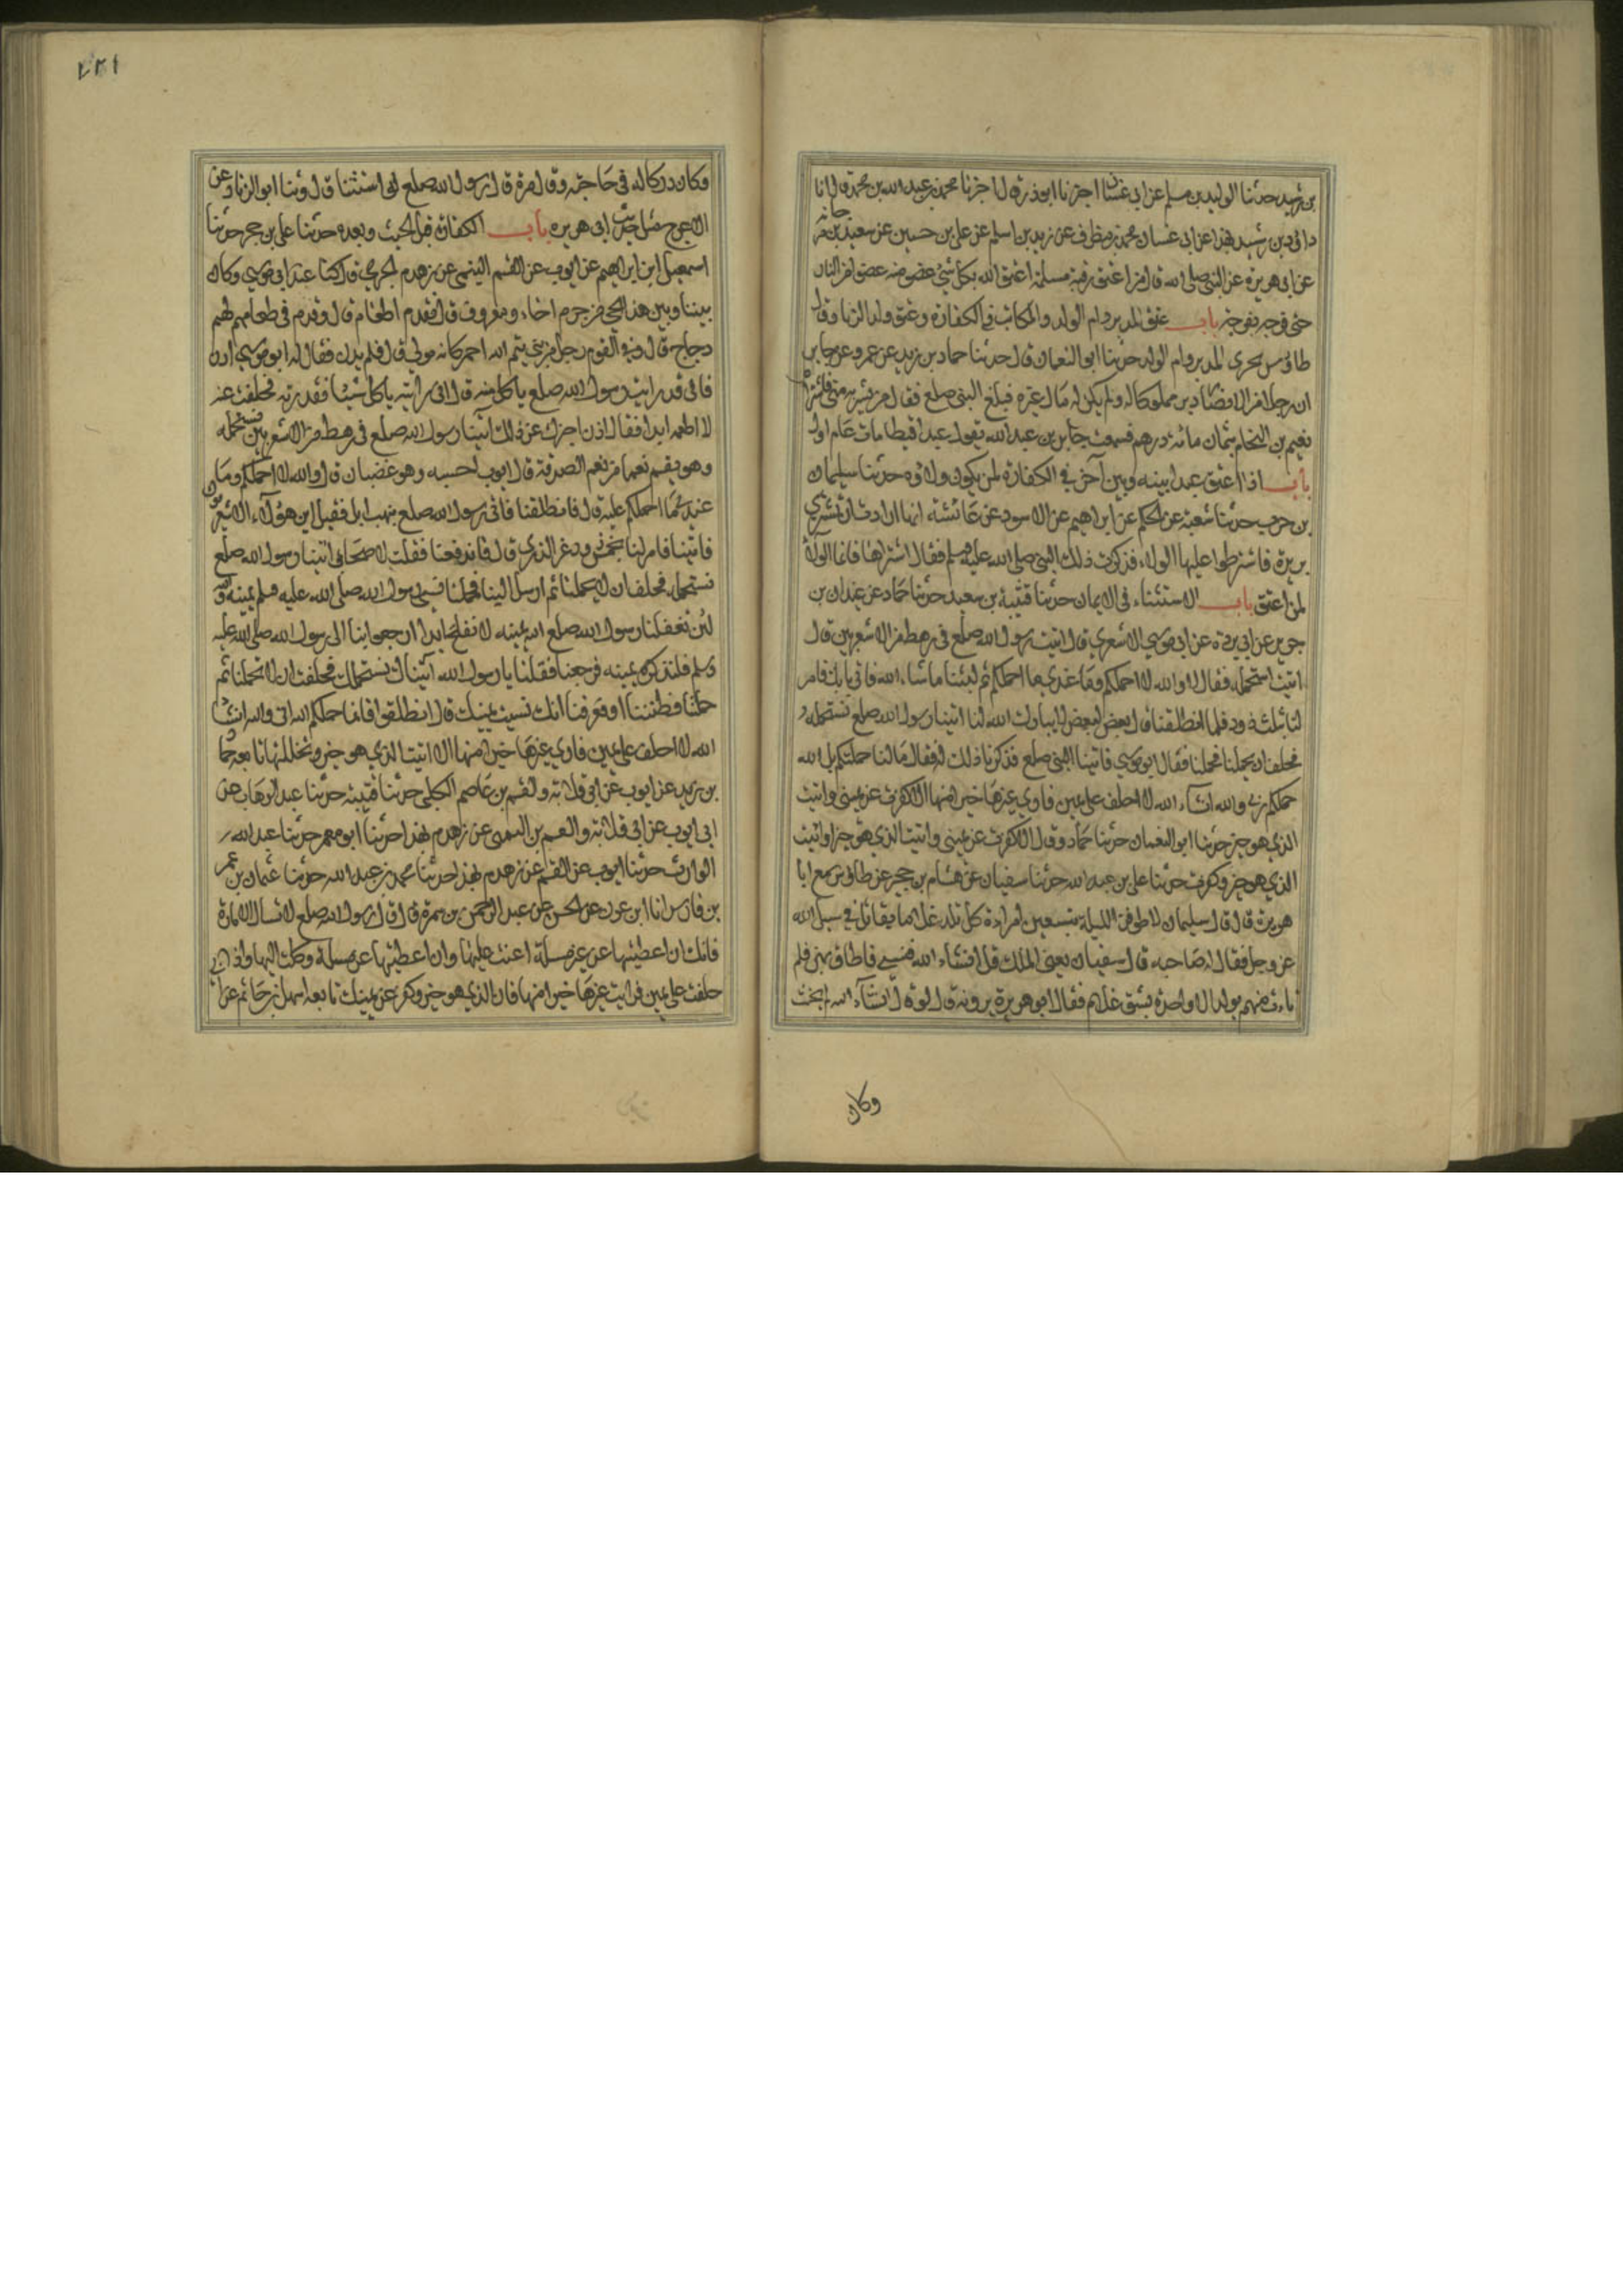 بن رشيد حدثنا الوليد بن مسلم عن ابي غسان اخبرنا ابو ذر قال اخبرنا محمد بن عبد الله بن محمد قال انا
داود بن رشيد بهذا عن ابي غسان محمد بن مطرف عن زيد بن اسلم عن علي بن حسين عن سعيد بن مرجانه
عن ابي هريرة عن النبي صلى الله قال من اعتق رقبة مسلمة اعتق الله بكل شئ عضو منه عضوا من النار
حتى فرجه بفرجه باب عتق المدبر وام الولد والمكاتب في الكفارة وعتق ولد الزنا وقال
طاوس يجزى المدبر وام الولد حدثنا ابو النعمان قال حدثنا حماد بن زيد عن عمرو عن جابر
ان رجلا من الانصار دبر مملوكا له ولم يكن له مال غيره فبلغ النبي صلعم فقال من يشتريه مني فاشتراه
نعيم بن النحام بثمان مائة درهم فسمعت جابر بن عبد الله يقول عبدا قبطيا مات عام اول
باب اذا اعتق عبدا بينه وبين آخر في الكفارة لمن يكون ولاؤه حدثنا سليمان
بن حرب حدثنا شعبة عن الحكم عن ابراهيم عن الاسود عن عائشة انها ارادت ان تشتري
بريرة فاشترطوا عليها الولاء فذكرت ذلك للنبي صلى الله عليه وسلم فقال اشتراها فانما الولاء
لمن اعتق باب الاستثناء في الايمان حدثنا قتيبة بن سعيد حدثنا حماد عن غيلان بن
جرير عن ابي بردة عن ابي موسي الاشعري قال اتيت رسول الله صلعم في رهط من الاشعريين قال
اتيت استحمله فقال لا والله لا احملكم وما عندي ما احملكم ثم لبثنا ما شاء الله فاتي بابل فامر
لنا بثلث ذود فلما انطلقنا قال بعض لبعض لا يبارك الله لنا اتينا رسول الله صلعم نستحمله
فحلف ان يحملنا فحملنا فقال ابو موسي فاتينا النبي صلعم فذكرنا ذلك له فقال ما لنا حملتكم بل الله
حملكم اني والله ان شاء الله لا احلف على يمين فاري غيرها خيرا منها الا كفرت عن يميني واتيت
الذي هو خير حدثنا ابو النعمان حدثنا حماد وقال الا كفرت عن يميني واتيت الذي هو خير او اتيت
الذي هو خير وكفرت حدثنا علي بن عبد الله حدثنا سفيان عن هشام بن حجير عن طاوس سمع ابا
هريرة قال قال سليمان لاطوفن الليلة بتسعين امراة كل تلد غلاما يقاتل في سبيل الله
عز وجل فقال له صاحبه قال سفيان يعني الملك قل ان شاء الله فنسي فاطاف بهن فلم
تات منهم بولد الا واحدة بشق غلام فقال ابو هريرة يرويه قال لو قال ان شاء الله لم يحنث
وكان
وكان دركا له في حاجته وقال مرة قال رسول الله صلعم لو استثنا قال وثنا ابو الزناد عن
الاعرج مثل حديث ابي هريره باب الكفارة قبل الحنث وبعده حدثنا علي بن حجر حدثنا
اسمعيل ابن ابراهيم عن ايوب عن القسم التيمي عن زهدم الجرمي قال كنا عند ابي موسي وكان
بيننا وبين هذا الحي من جرم اخاء ومعروف قال فقدم الطعام قال وقدم في طعامهم لحم
دجاج قال وفي القوم رجل من بني تيم الله احمر كانه مولي قال فلم يدن فقال له ابو موسي ادن
فاني قد رايت رسول الله صلعم ياكل منه قال اني رايته ياكل شيئا فقذرته فحلفت عنه
لا اطعمه ابدا فقال ادن اخبرك عن ذلك اتينا رسول الله صلعم في رهط من الاشعريين نستحمله
وهو يقسم نعما من نعم الصدقة قال ايوب احسبه وهو غضبان قال والله لا احملكم وما
عندي ما احملكم عليه قال فانطلقنا فاتي رسول الله صلعم بنهب ابل فقيل اين هؤلاء الاشعريون
فاتينا فامر لنا بخمس ذود غر الذري قال فاندفعنا فقلت لاصحابي اتينا رسول الله صلعم
نستحمله فحلف ان لا يحملنا ثم ارسل الينا فحملنا نسي رسول الله صلى الله عليه وسلم يمينه والله
لئن تغفلنا رسول الله صلعم يمينه لا نفلح ابدا ارجعوا بنا الى رسول الله صلى الله عليه
وسلم فلنذكره يمينه فرجعنا فقلنا يا رسول الله اتيناك نستحملك فحلفت ان لا تحملنا ثم
حملتنا فظننا او فعرفنا انك نسيت يمينك قال انطلقوا فانما حملكم الله اني والله ان شا
الله لا احلف على يمين فاري غيرها خيرا منها الا اتيت الذي هو خير وتحللتها تابعه حما
بن زيد عن ايوب عن ابي قلابة والقسم بن عاصم الكليبي حدثنا قتيبة حدثنا عبد الوهاب عن
ايوب عن ابي قلابة والقسم التميمي عن زهدم بهذا حدثنا ابو معمر حدثنا عبد
الوارث حدثنا ايوب عن القسم عن زهدم بهذا حدثنا محمد بن عبد الله حدثنا عثمان بن عمر
بن فارس انا ابن عون عن الحسن عن عبد الرحمن بن سمرة قال قال رسول الله صلعم لا تسال الامارة
فانك ان اعطيتها عن غير مسلة اعنت عليها وان اعطيتها عن مسلة وكلت اليها واذا
حلفت على يمين فرايت غيرها خيرا منها فات الذي هو خير وكفر عن يمينك تابعه اسهل بن حاتم عن